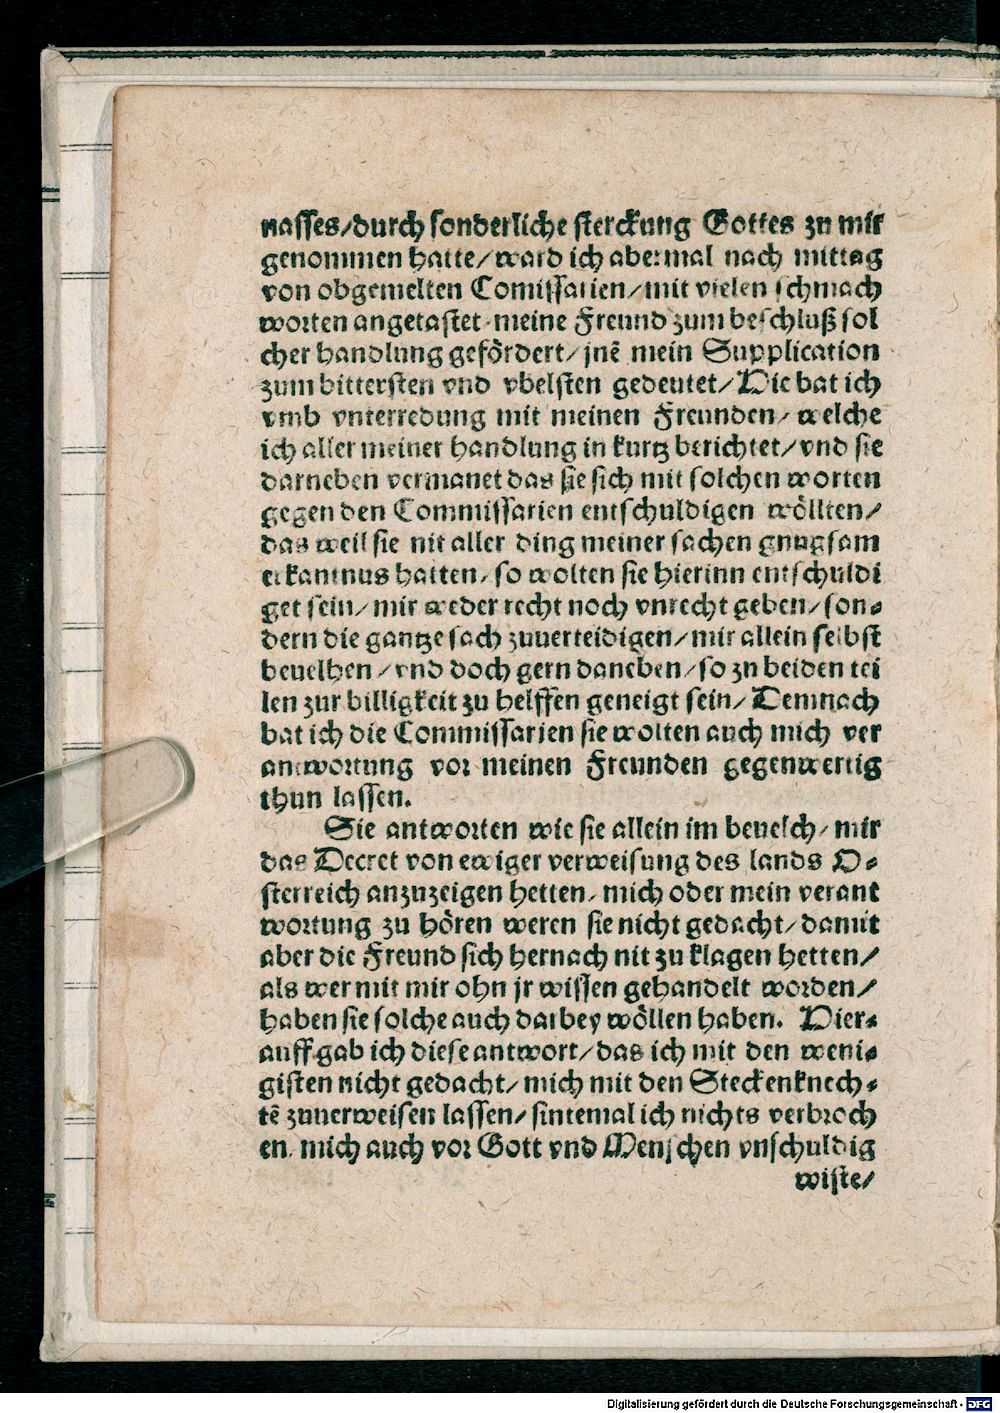 nasses/durch sonderliche sterckung Gottes zu mir
genommen hatte/ward ich abermal nach mittag
von obgemelten Comissarien/mit vielen schmach
worten angetastet/meine Freund zum beschluß sol
cher handlung gefördert/jnē mein Supplication
zum bittersten vnd vbelsten gedeutet/Hie bat ich
vmb vnterredung mit meinen Freunden/welche
ich aller meiner handlung in kurtz berichtet/vnd sie
darneben vermanet das sie sich mit solchen worten
gegen den Commissarien entschuldigen wöllten/
das weil sie nit aller ding meiner sachen gnugsam
erkantnus hatten/so wolten sie hierinn entschuldi
get sein/mir weder recht noch vnrecht geben/son⸗
dern die gantze sach zuuerteidigen/mir allein selbst
beuelhen/vnd doch gern daneben/so zu beiden tei
len zur billigkeit zu helffen geneigt sein/Demnach
bat ich die Commissarien sie wolten auch mich ver
antwortung vor meinen Freunden gegenwertig
thun lassen.
Sie antworten wie sie allein im beuelch/mir
das Decret von ewiger verweisung des lands O⸗
sterreich anzuzeigen hetten/mich oder mein verant
wortung zu hören weren sie nicht gedacht/damit
aber die Freund sich hernach nit zu klagen hetten/
als wer mit mir ohn jr wissen gehandelt worden/
haben sie solche auch darbey wöllen haben. Hier⸗
auff gab ich diese antwort/das ich mit den weni⸗
gisten nicht gedacht/mich mit den Steckenknech⸗
tē zuuerweisen lassen/sintemal ich nichts verbroch
en/mich auch vor Gott vnd Menschen vnschuldig
wiste/
Digitalisierung gefördert durch die Deutsche Forschungsgemeinschaft - DFG